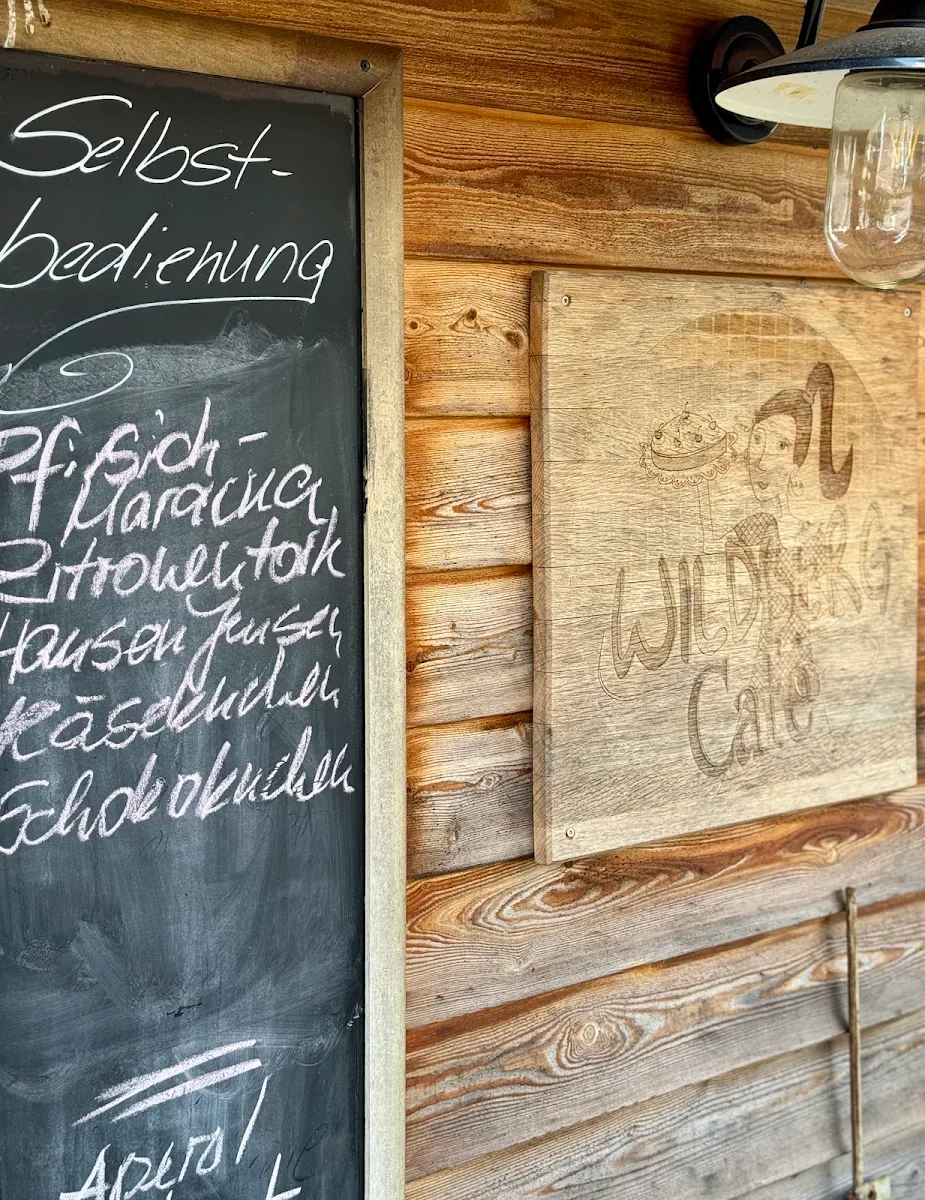 Selbst-
bedienung
Pfirsich-
Maracuja
Zitronentarte
Hansen Jensen
Käsekuchen
Schokokuchen
Aperol
WILDBERG
Café